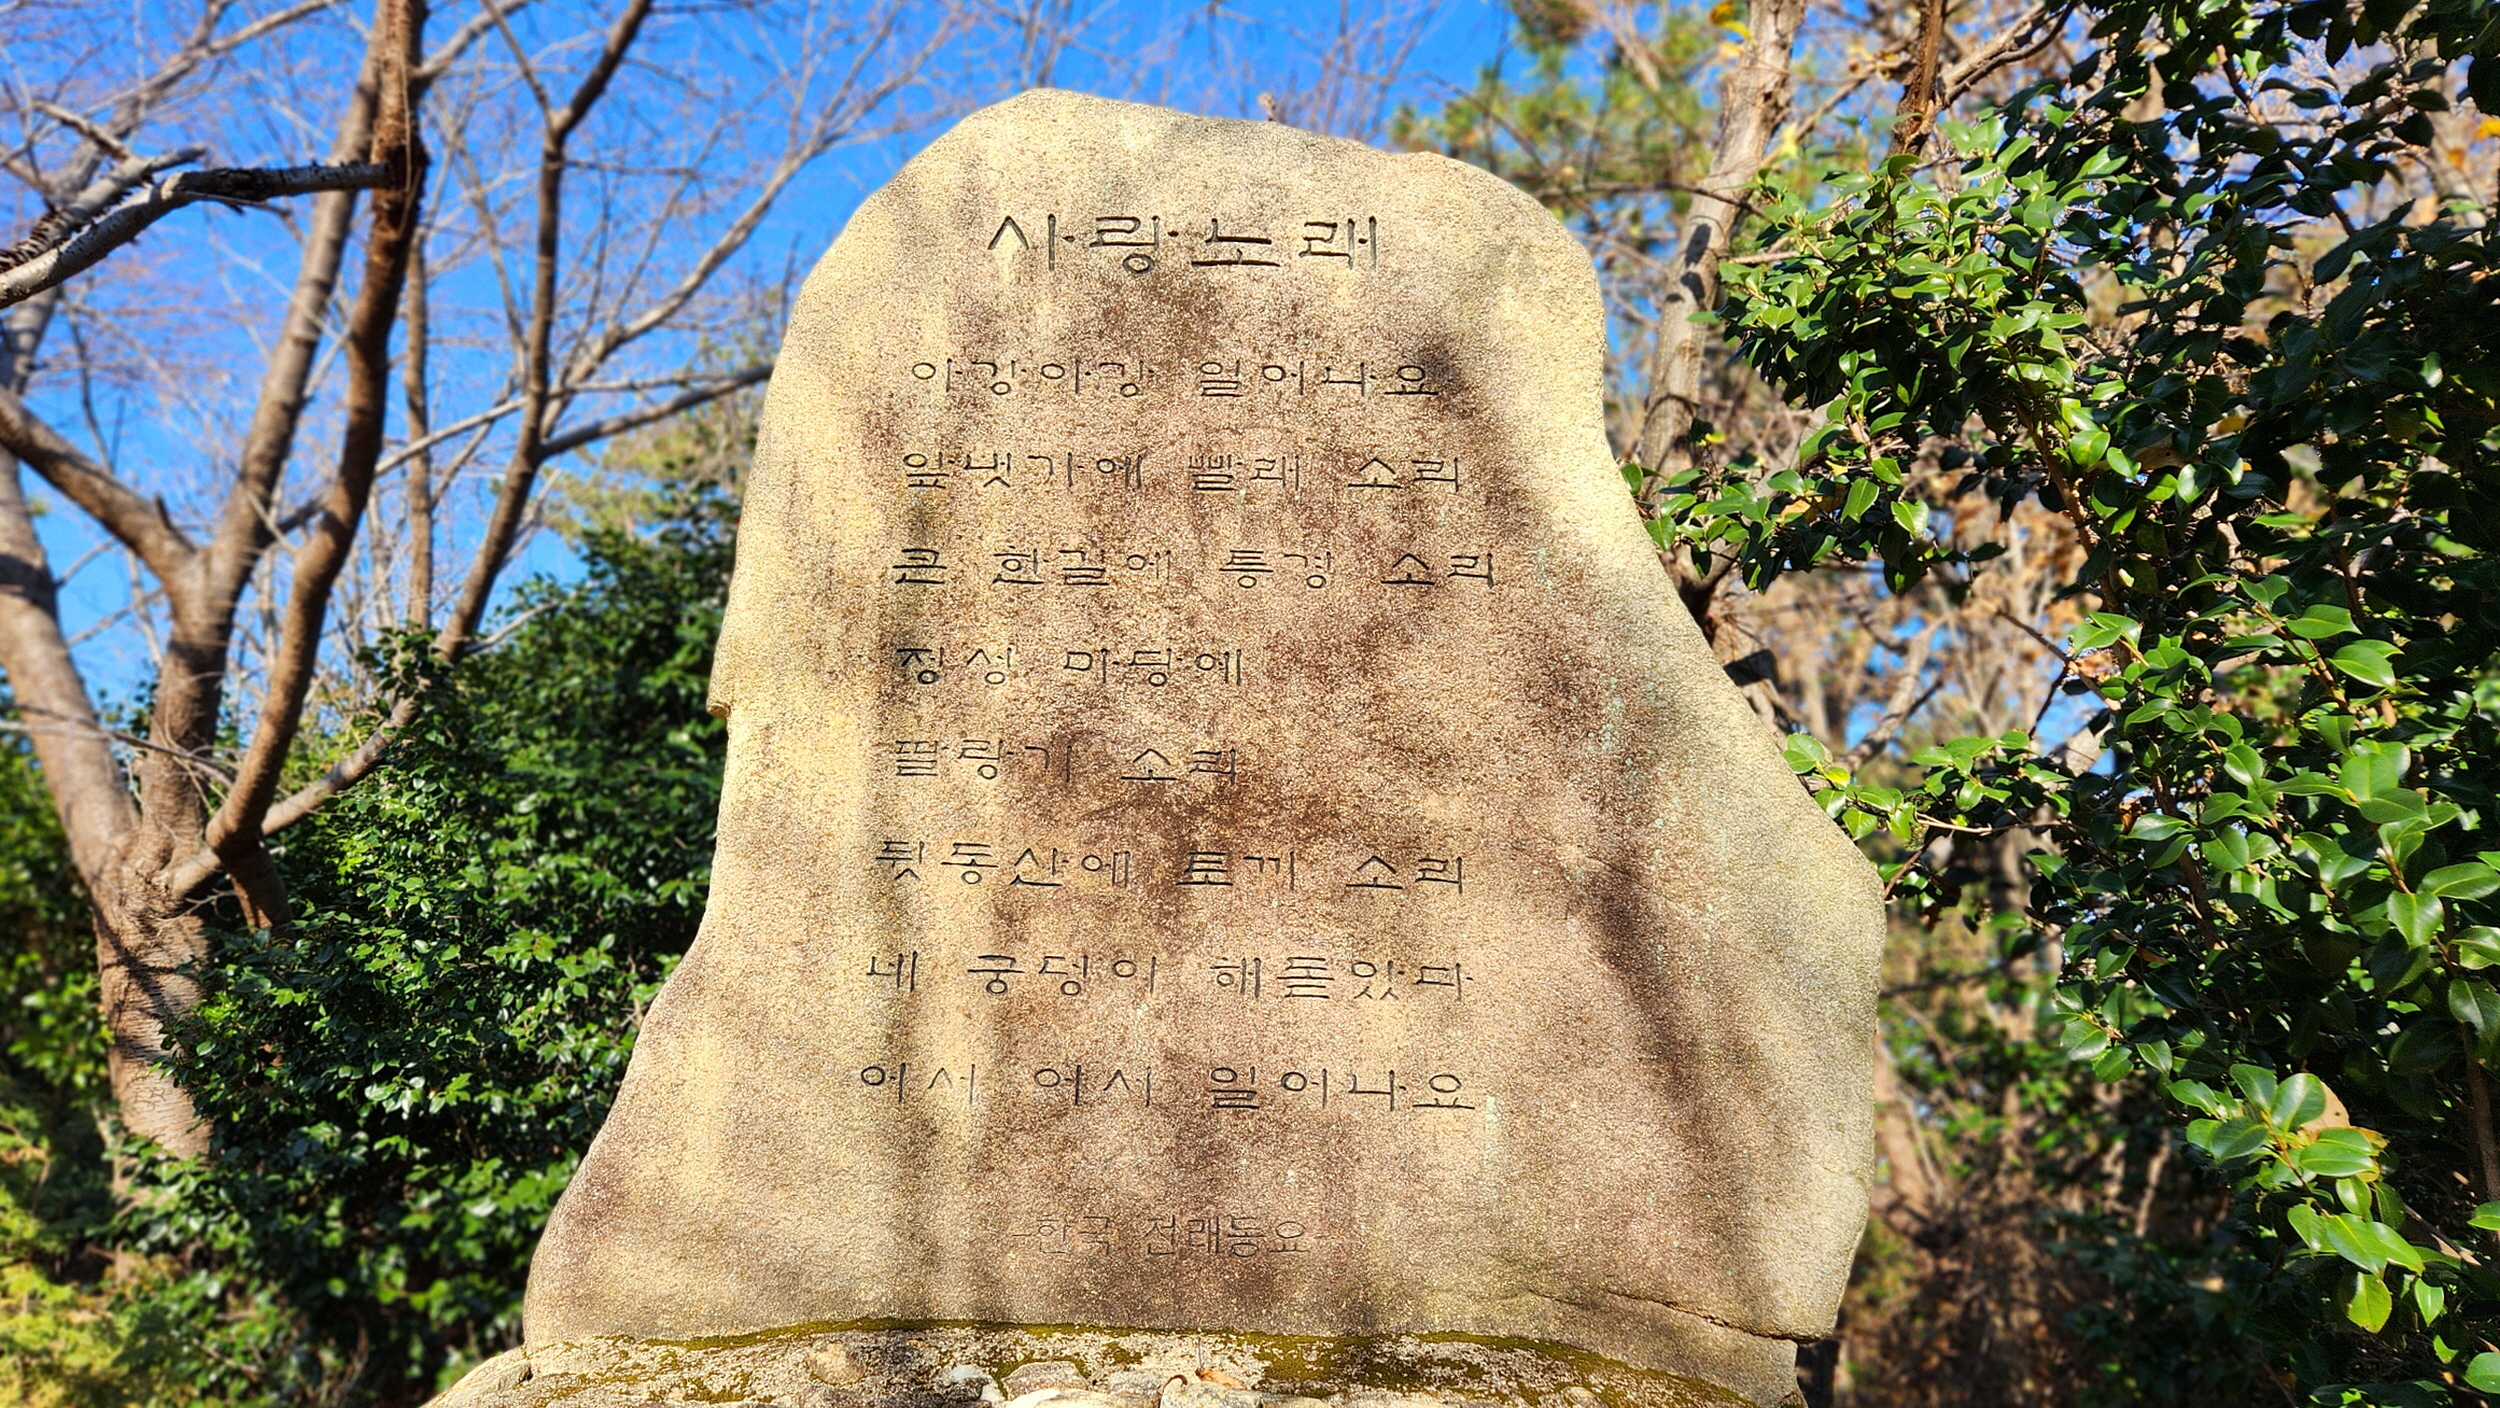 사랑노래
아강아강 일어나요
앞냇가에 빨래 소리
큰 한길에 통경 소리
징성 마당에
팔랑기 소리
뒷동산에 토끼 소리
네 궁덩이 해돋았다
어서 어서 일어나요
-한국 전래동요-